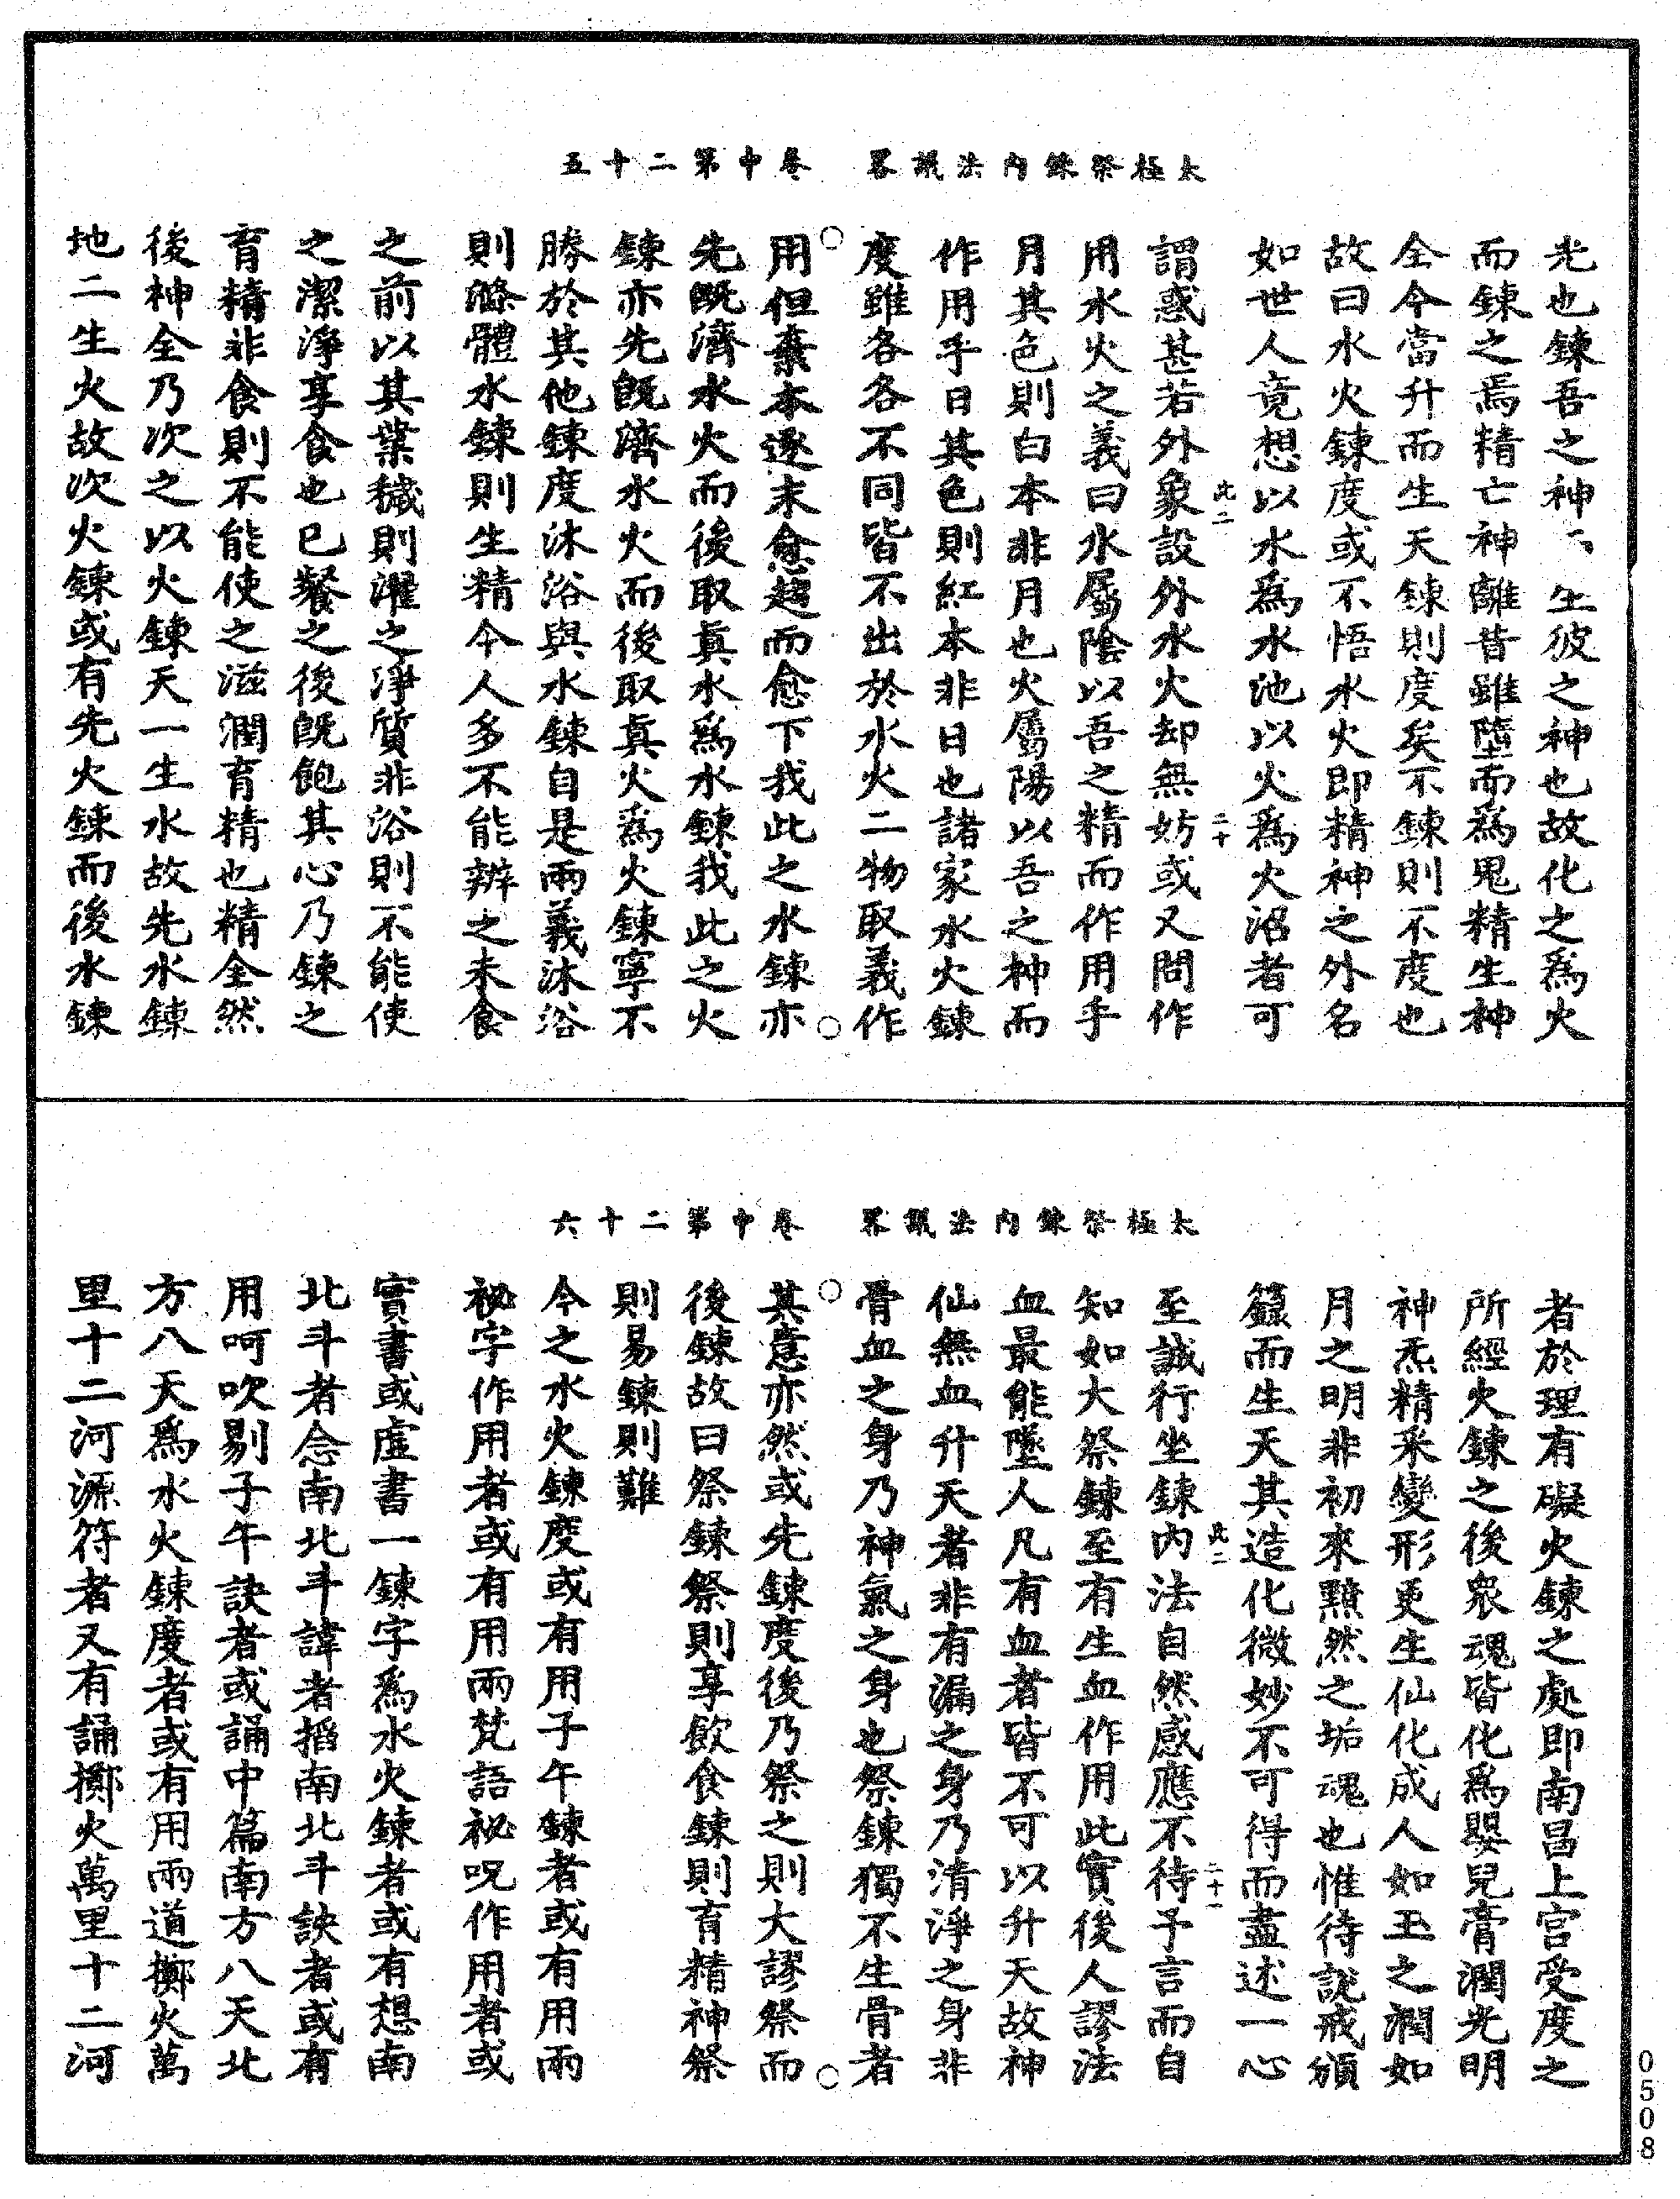 太極祭鍊內法議畧　卷中第二十五
光也鍊吾之神生彼之神也故化之爲火
而鍊之焉精亡神離昔雖墮而爲鬼精生神
全今當升而生天鍊則度矣不鍊則不度也
故曰水火鍊度或不悟水火即精神之外名
如世人竟想以水爲水池以火爲火沼者可
此二　二十
謂惑甚若外象設外水火却無妨或又問作
用水火之義曰水屬陰以吾之精而作用乎
月其色則白本非月也火屬陽以吾之神而
作用乎日其色則紅本非日也諸家水火鍊
度雖各各不同皆不出於水火二物取義作
用但棄本逐末愈趨而愈下我此之水鍊亦
先既濟水火而後取眞水爲水鍊我此之火
鍊亦先既濟水火而後取眞火爲火鍊寧不
勝於其他鍊度沐浴與水鍊自是兩義沐浴
則滌體水鍊則生精今人多不能辨之未食
之前以其業穢則濯之淨質非浴則不能使
之潔淨享食也已餐之後既飽其心乃鍊之
育精非食則不能使之滋潤育精也精全然
後神全乃次之以火鍊天一生水故先水鍊
地二生火故次火鍊或有先火鍊而後水鍊
太極祭鍊內法議畧　卷中第二十六
者於理有礙火鍊之處即南昌上宮受度之
所經火鍊之後衆魂皆化爲嬰兒膏潤光明
神炁精釆變形更生仙化成人如玉之潤如
月之明非初來黯然之垢魂也惟待說戒頒
籙而生天其造化微妙不可得而盡述一心
此二　二十一
至誠行坐鍊內法自然感應不待予言而自
知如大祭鍊至有生血作用此實後人謬法
血最能墜人凡有血者皆不可以升天故神
仙無血升天者非有漏之身乃清淨之身非
骨血之身乃神氣之身也祭鍊獨不生骨者
其意亦然或先鍊度後乃祭之則大謬祭而
後鍊故曰祭鍊祭則享飲食鍊則育精神祭
則易鍊則難
今之水火鍊度或有用子午鍊者或有用兩
祕字作用者或有用兩梵語祕呪作用者或
實書或虛書一鍊字爲水火鍊者或有想南
北斗者念南北斗諱者搯南北斗訣者或有
用呵吹剔子午訣者或誦中篇南方八天北
方八天爲水火鍊度者或有用兩道擲火萬
里十二河源符者又有誦擲火萬里十二河
0508